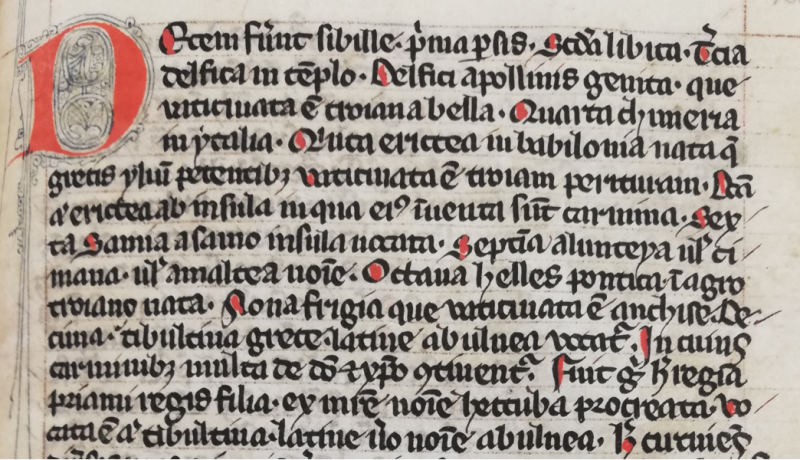 DEcem sūnt sibille· p̄ma psis· Scd̄a libica· T̄cia
delfica in tēplo· Delfici apollinis genita· que
vaticinata ē troiana bella· Quarta chimeria
in ytalia· Quīta erictea in babilonia nata q̄
grecis yliū petentibꝫ vaticinata ē troiam perituram· Dc̄ā
aͭ erictea ab insula in qua eiꝰ īuenta sūt carmina· Sex
ta Samia a samo insula uocata· Septīa alunteya ul̓ ci
mana· ul̓ amaltea noīe· Octaua helles pontica ī agro
troiano nata· Nona frigia que vaticinata ē anchise· De
cima· tiburtina grece· latine abulnea vocat᷑· In cuius
carminibꝫ multa de dō ⁊ xp̄o ꝯtinent᷑· Fuit g̊ h̄ regis
priami regis filia· ex mr̄e noīe heccuba procreata· Vo
cata ē aͭ tiburtina· latine ū̊o noīe abulnea· H̄ circuiēs